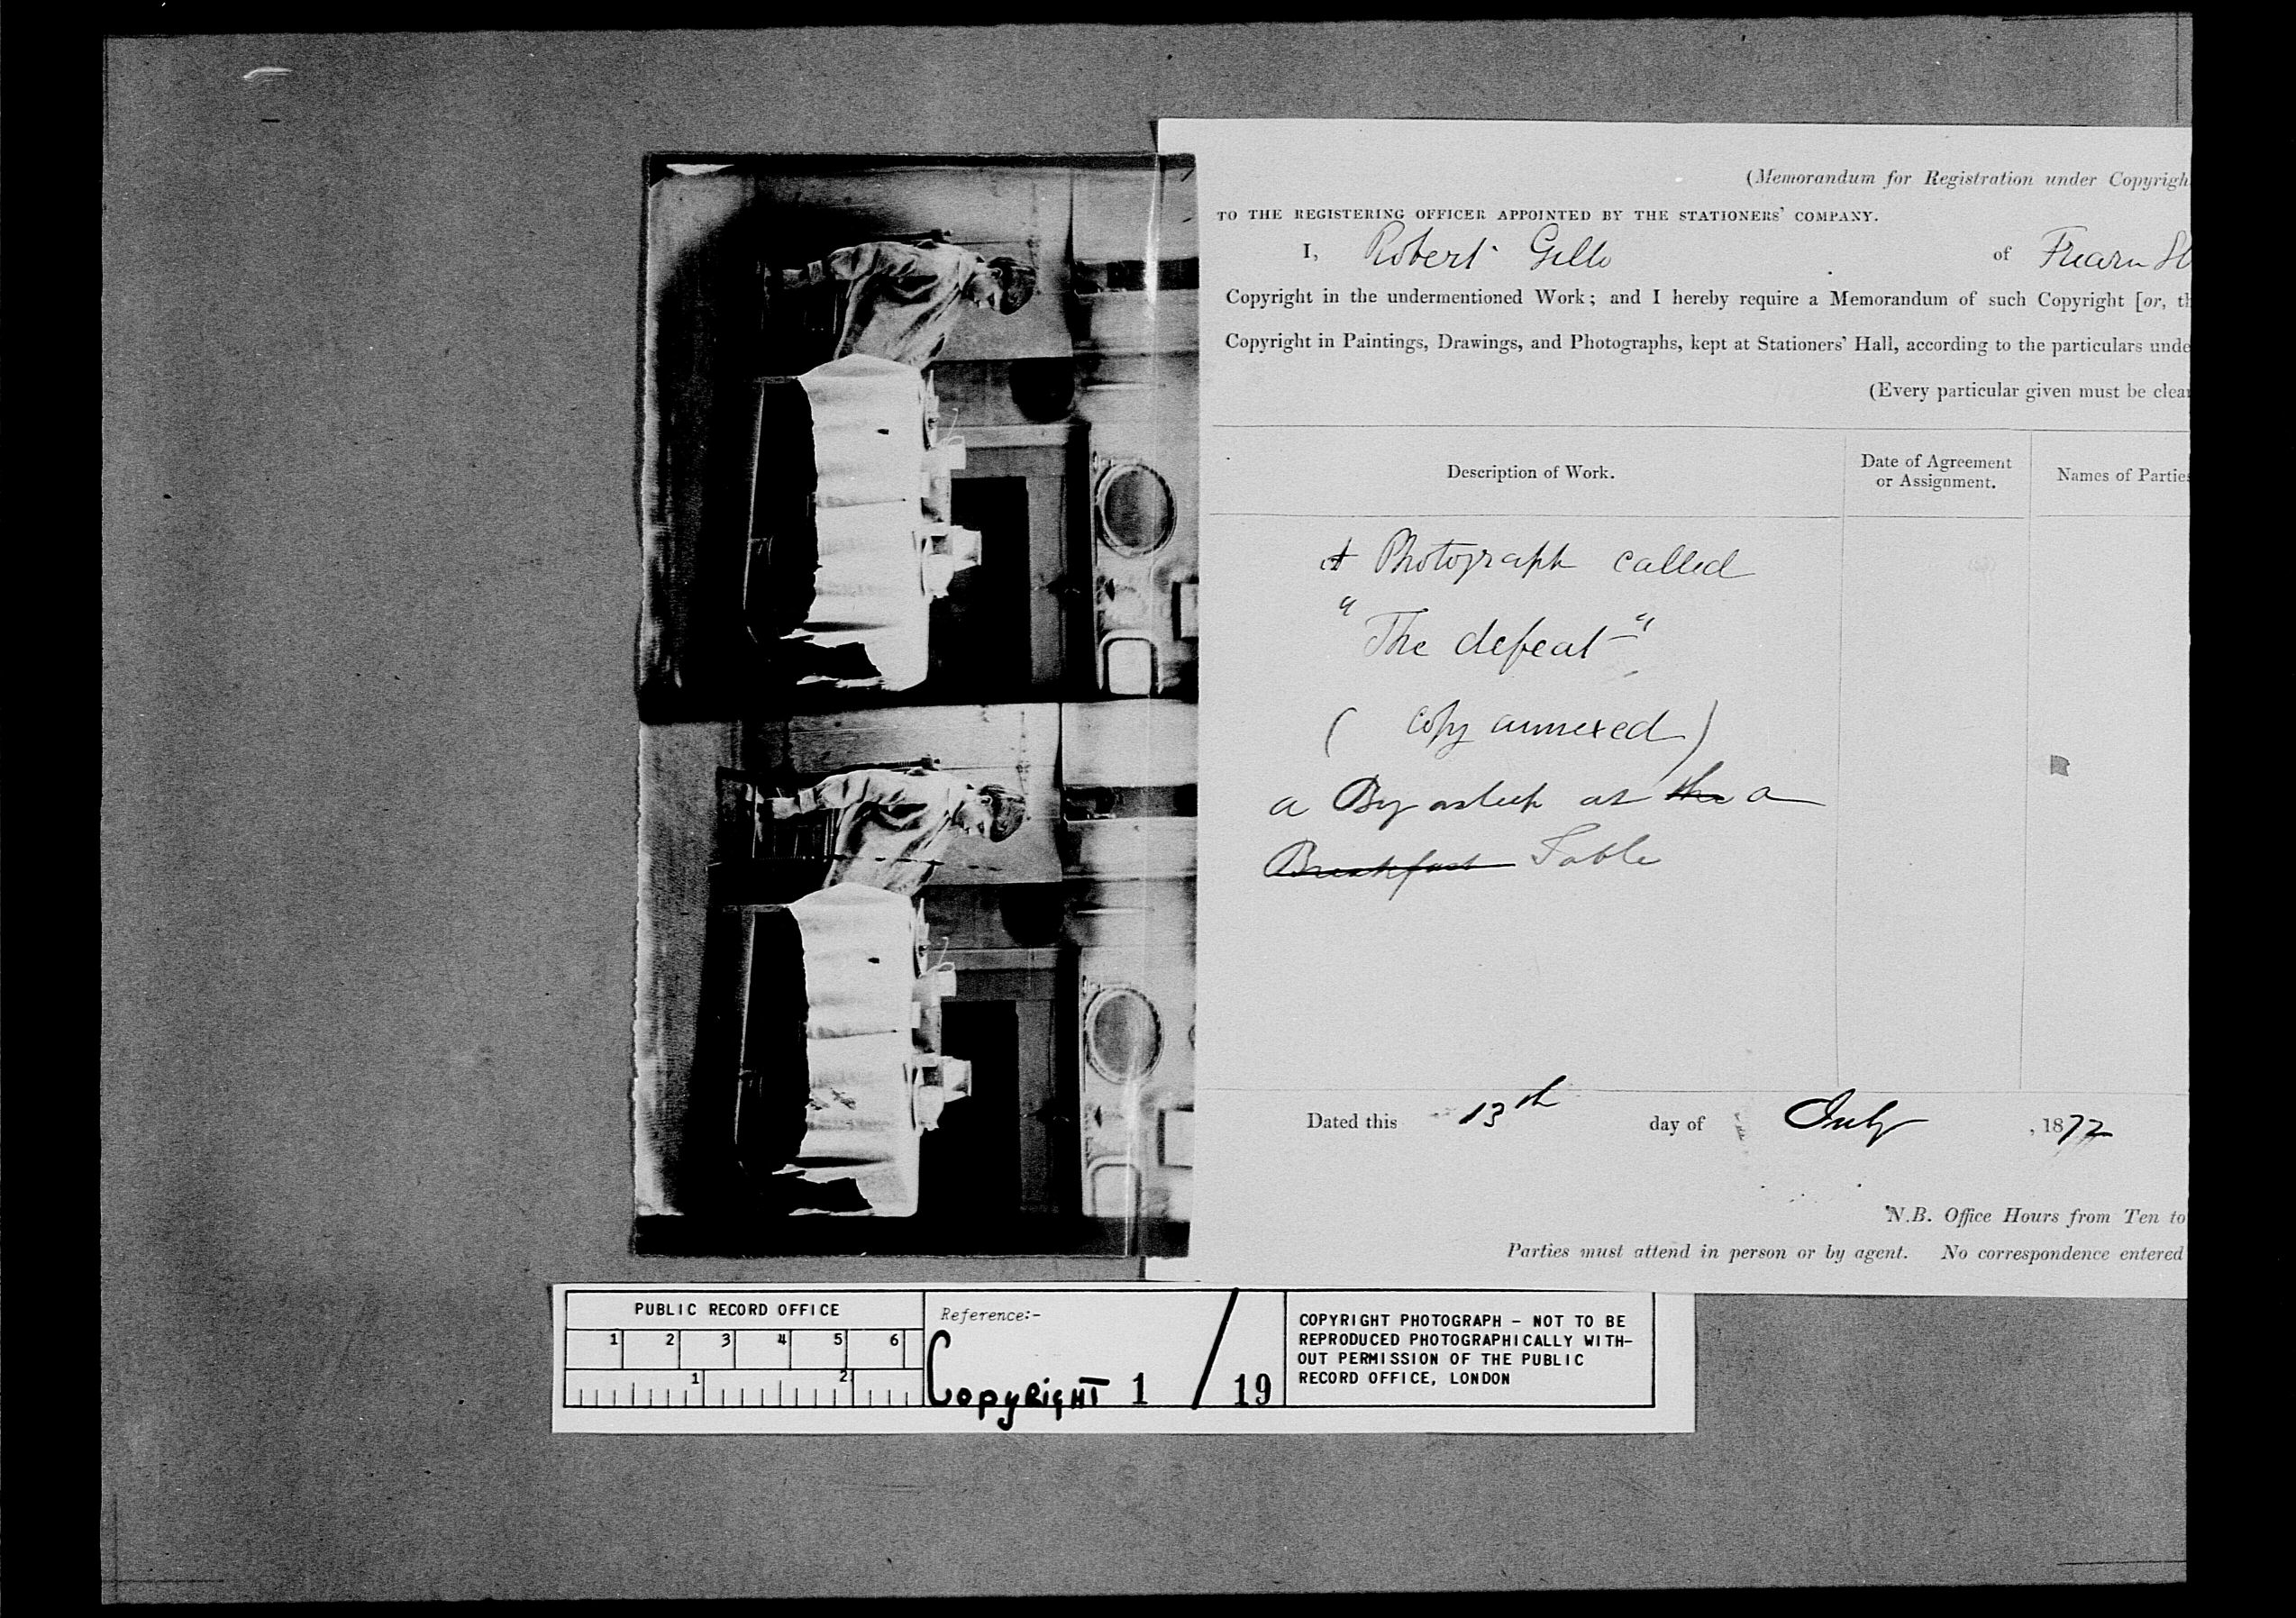 (Memorandum for Registration under Copyrigh
TO THE REGISTERING OFFICER APPOINTED BY THE STATIONERS' COMPANY.
I, Robert Gillo of Fearn St
Copyright in the undermentioned Work; and I hereby require a Memorandum of such Copyright [or, th
Copyright in Paintings, Drawings, and Photographs, kept at Stationers' Hall, according to the particulars unde
(Every particular given must be clea
Description of Work.
Date of Agreement
or Assignment.
Names of Parties
A Photograph called
"The defeat"
(copy annexed)
a Boy asleep at the a
Breakfast Table
Dated this 13th day of July, 1872
N.B. Office Hours from Ten to
Parties must attend in person or by agent. No correspondence entered
PUBLIC RECORD OFFICE
1 2 3 4 5 6
1 2
Reference:-
COPYRIGHT 1 / 19
COPYRIGHT PHOTOGRAPH - NOT TO BE
REPRODUCED PHOTOGRAPHICALLY WITH-
OUT PERMISSION OF THE PUBLIC
RECORD OFFICE, LONDON